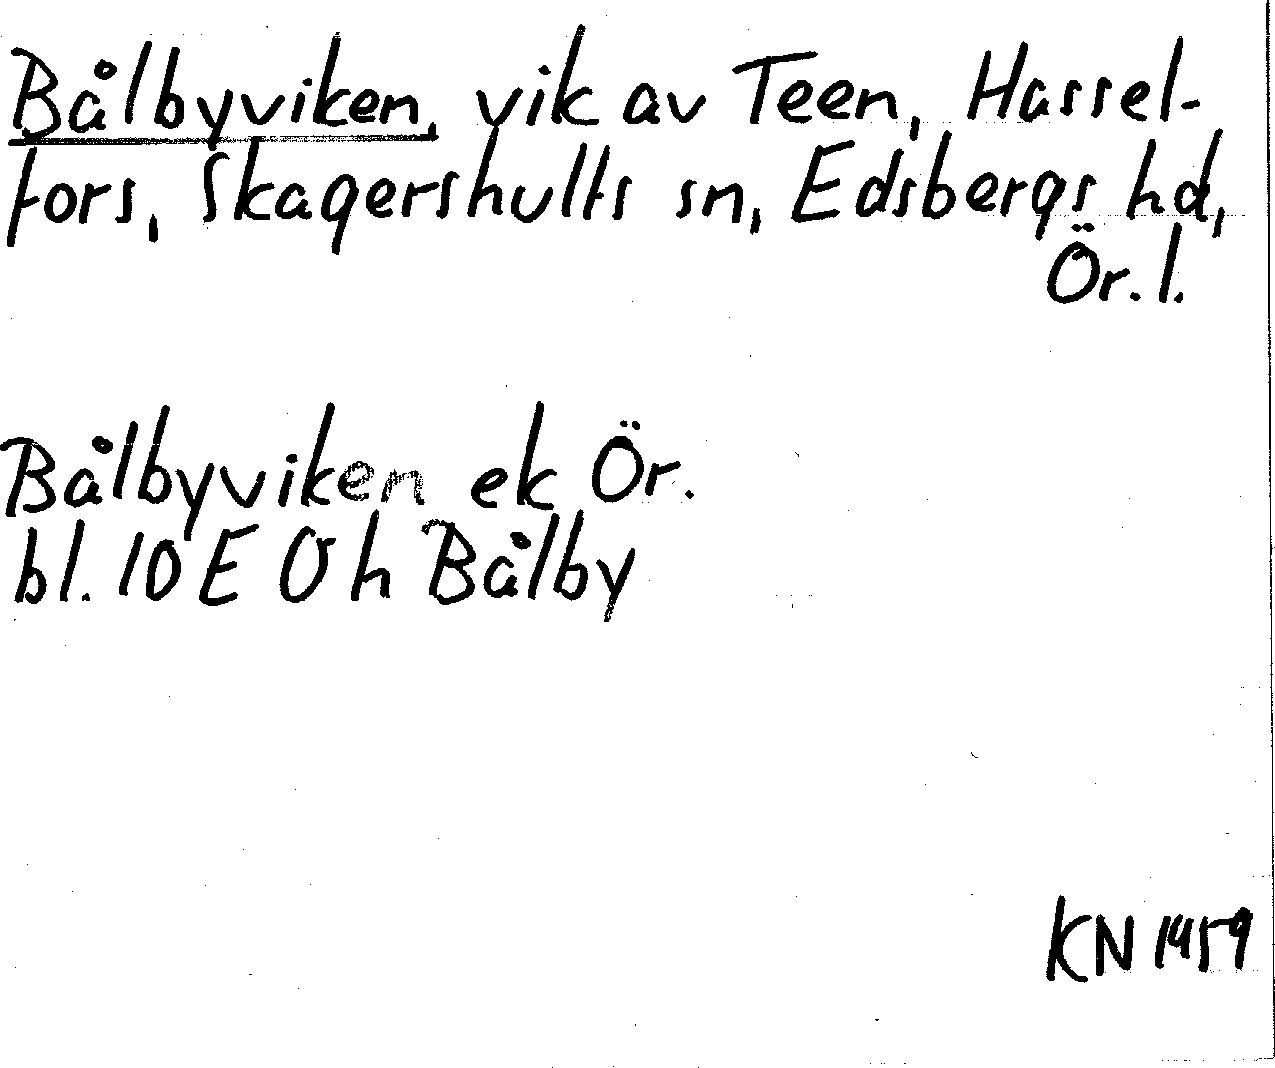 Bålbyviken, vik av Teen, Hassel-
fors, Skagershults sn, Edsbergs hd,
Ör. l.
Bålbyviken ek Ör.
bl. 10 E Ö h Bålby
KN 1959